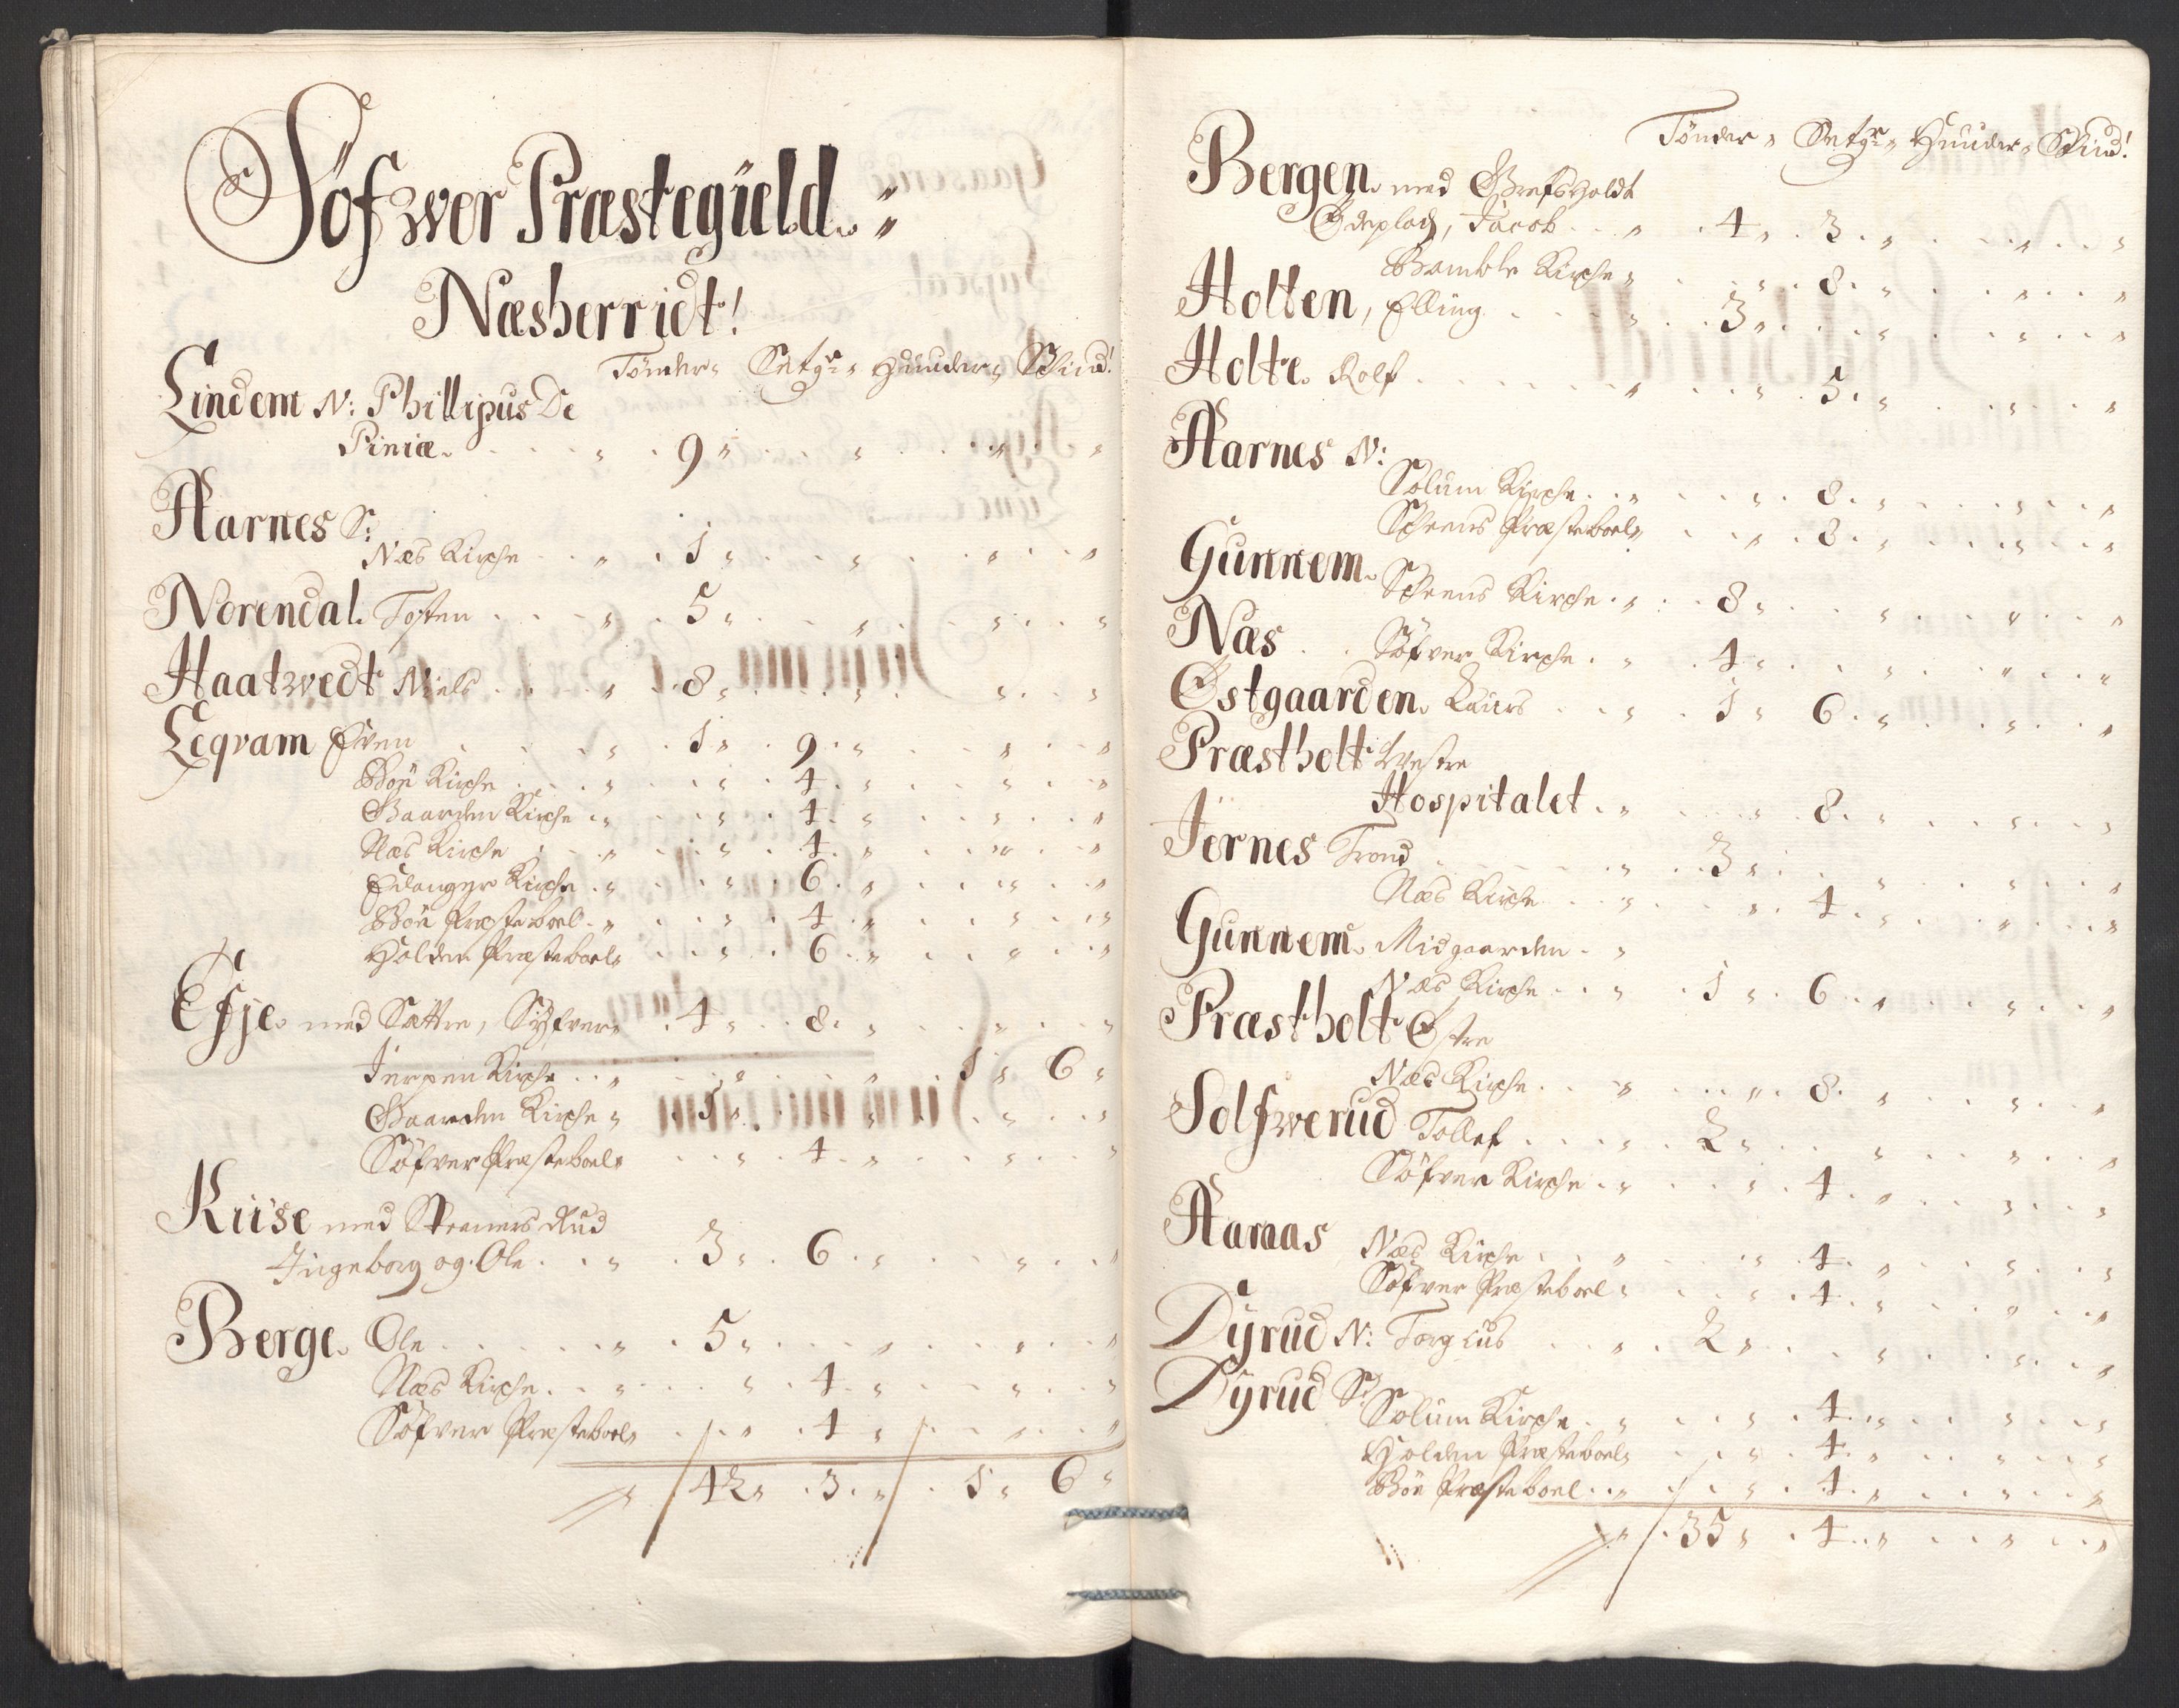 Söfwer Præstegield.
Næsherridt!
Tönder, Setgr, Huuder, Skind!
Lindem N: Phillipus De
Piniæ. 9
Aarnes S:
Næs Kirche 1
Norendal. Tosten 5
Haatwedt Niels 8
Leqvam Even 1 9
Böe Kirche 4
Gaarden Kirche 4
Næs Kirche 4
Eidanger Kirche 6
Böe Præsteboel 4
Holden Præsteboel 6
Efje. med Sættre, Syfver 4 8
Jerpen Kirche 1 6
Gaarden Kirche 1
Söfver Præsteboel 4
Kiise med Rud
Ingeborg og Ole 3 6
Berge. Ole 5
Næs Kirche 4
Söfver Præsteboel 4
42 3 1 6
Tönder, Setgr, Huuder, Skind!
Bergen. med Grefsholdt
Ödeplads, Jacob 4 3
Bamble Kirche 8
Holten, Elling 3
Holte. Rolf 5
Aarnes N:
Solum Kirche 8
Scheens Præsteboel 8
Gunnem. Scheens Kirche 8
Næs Söfver Kirche 4
Östgaarden. Laurs 1 6
Præstholt Westre
Hospitalet 8
Jernes Trond 3
Næs Kirche 4
Gunnem. Midgaarden
Næs Kirche 1 6
Præstholt Östre
Næs Kirche 8
Solfwerud Tollef 2
Söfver Kirche 4
Aamaas Næs Kirche 4
Söfver Præsteboel 4
Dyrud N: Torgius 2
Dyrud S:
Solum Kirche 4
Holden Præsteboel 4
Böe Præsteboel 4
35 4